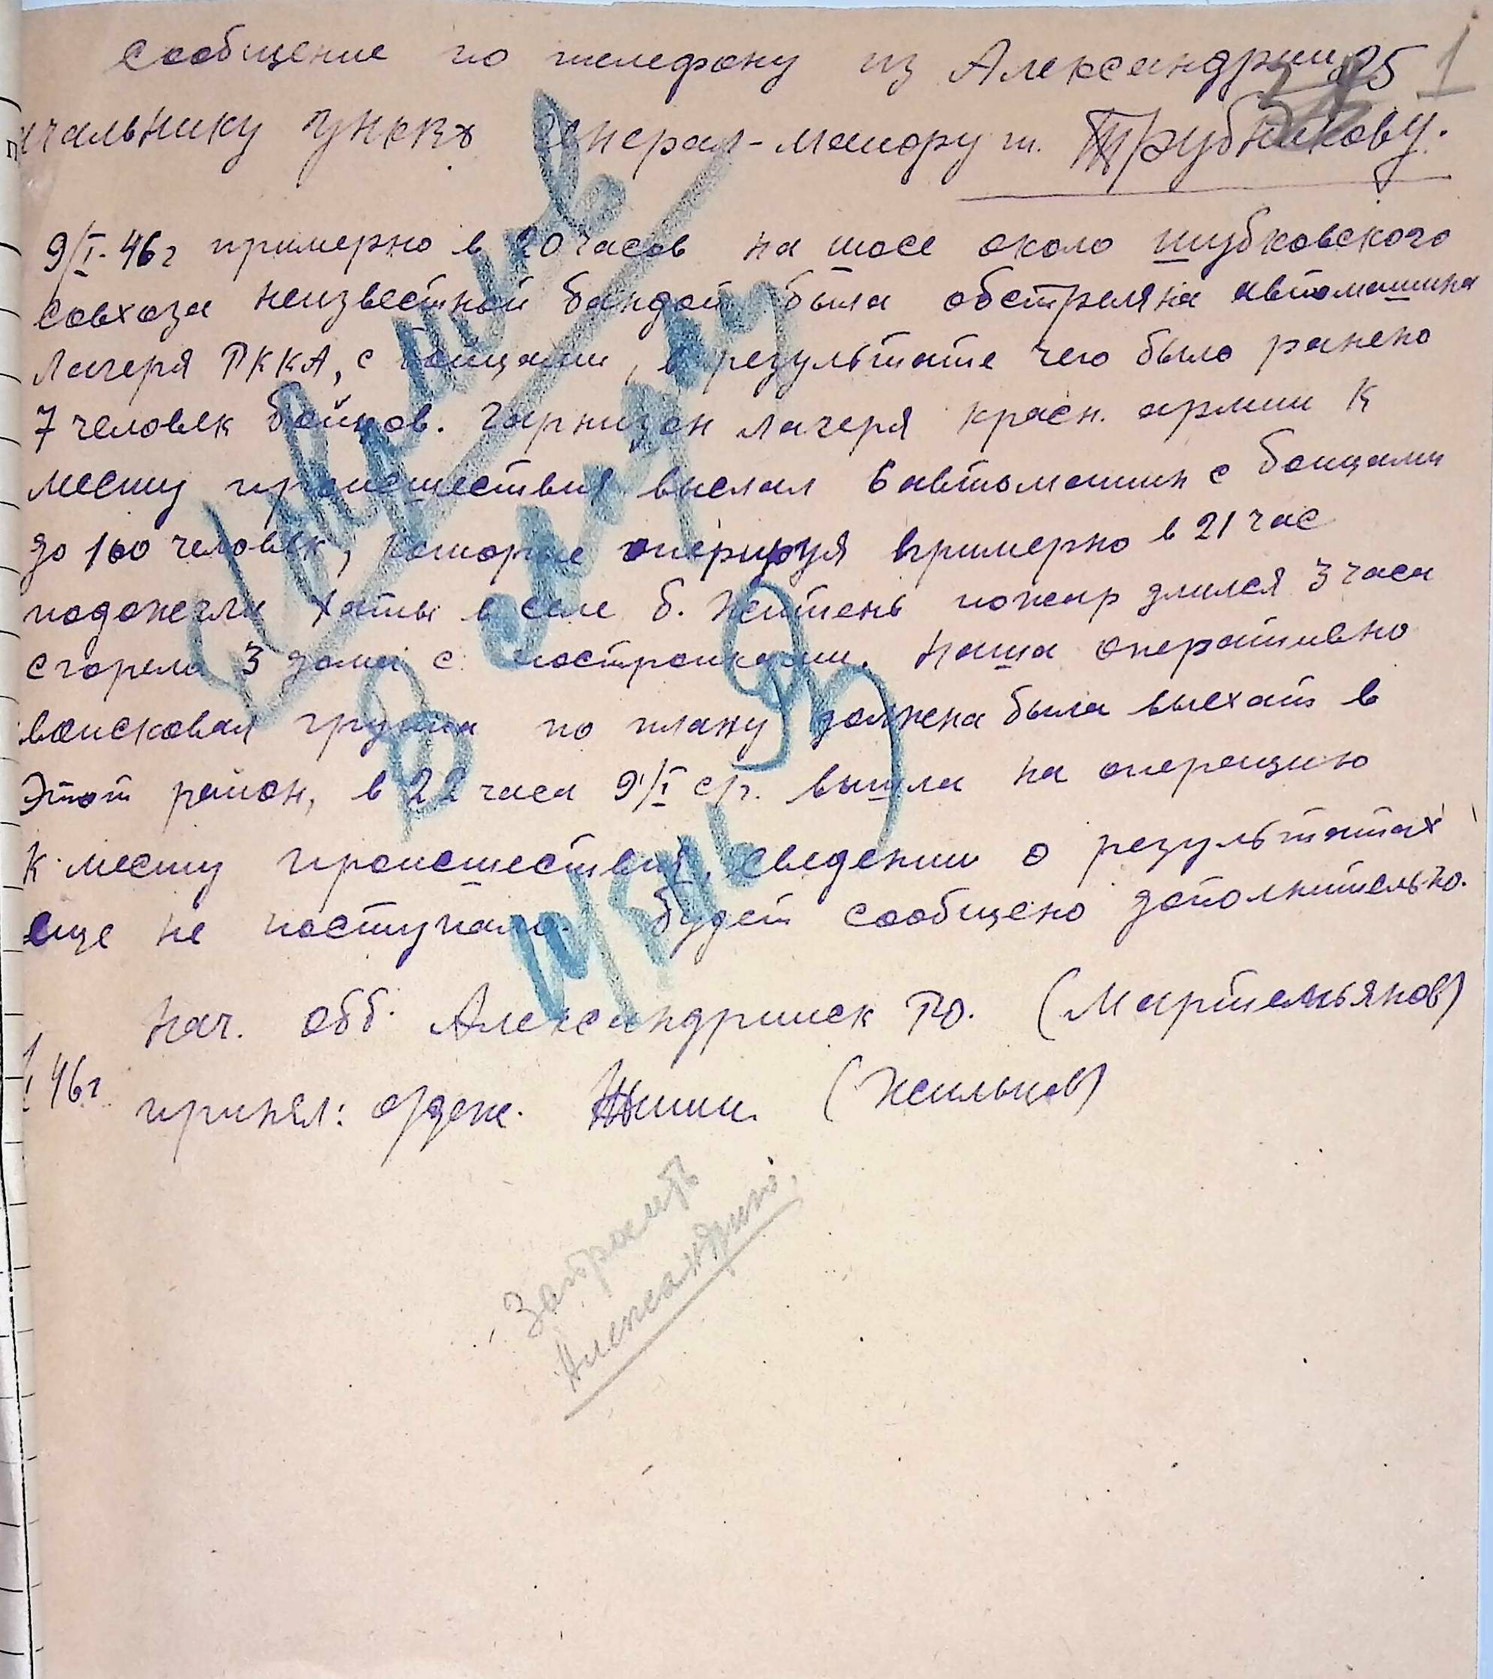 сообщение по телефону из Александрии 25 1
начальнику УНКВД Генерал-майору т. Трубникову.
9/I-46г примерно в 20 часов на шосе около шубковского
совхоза неизвестной бандой была обстреляна автомашина
лагеря РККА, с бойцами, в результате чего было ранено
7 человек бойцов. Гарнизон лагеря красн. армии к
месту происшествия выслал 6 автомашин с бойцами
до 100 человек, которые оперируя примерно в 21 час
подожгли хаты в селе б. Житень пожар длился 3 часа
сгорело 3 дома с постройками. Наша оперативно
войсковая группа по плану должна была выехать в
этот район, в 22 часа 9/I с/г. вышла на операцию
к месту происшествия, сведении о результатах
еще не поступало. будет сообщено дополнительно.
нач. обб. Александрийск РО. (Мартемьянов)
I 46г
принял: (Жильцов)
Запросить
Александрию.